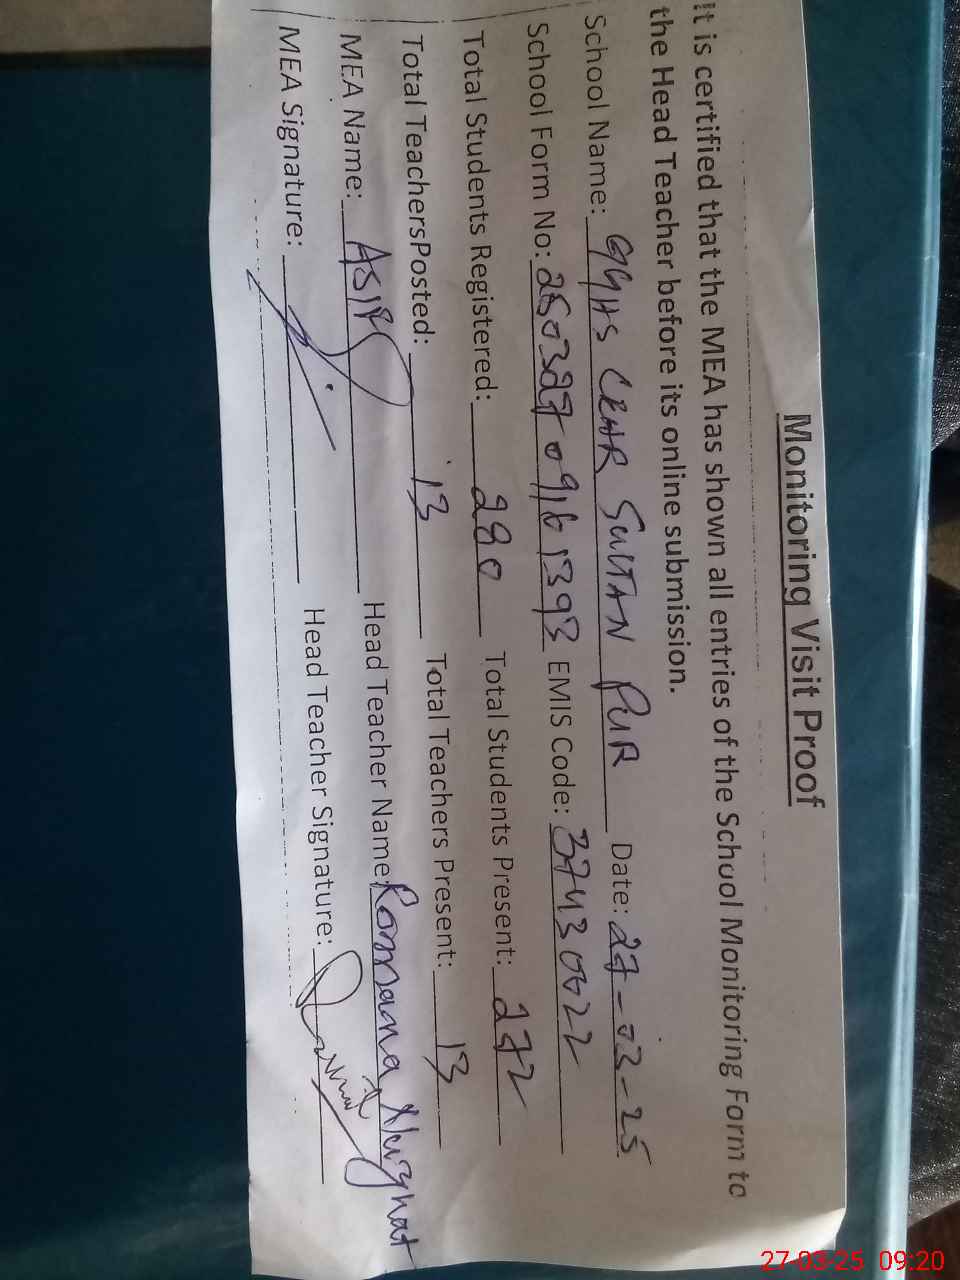 Monitoring Visit Proof
It is certified that the MEA has shown all entries of the School Monitoring Form to
the Head Teacher before its online submission.
School Name: GGHS CHAR SULTAN PUR Date: 27-03-25
School Form No: 25032709161393 EMIS Code: 37430022
Total Students Registered: 280 Total Students Present: 272
Total TeachersPosted: 13 Total Teachers Present: 13
MEA Name: ASIF Head Teacher Name: Romana
MEA Signature: Head Teacher Signature:
27-03-25 09:20